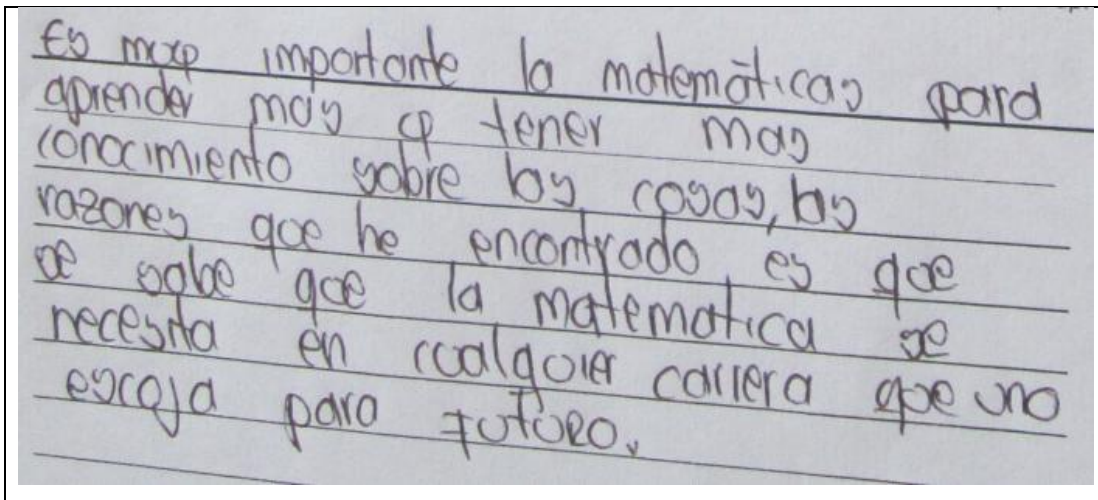 Es muy importante la matemáticas para
aprender mas y tener mas
conocimiento sobre las cosas, las
razones que he encontrado es que
se sabe que la matematica se
necesita en cualquier carrera que uno
escoja para futuro.